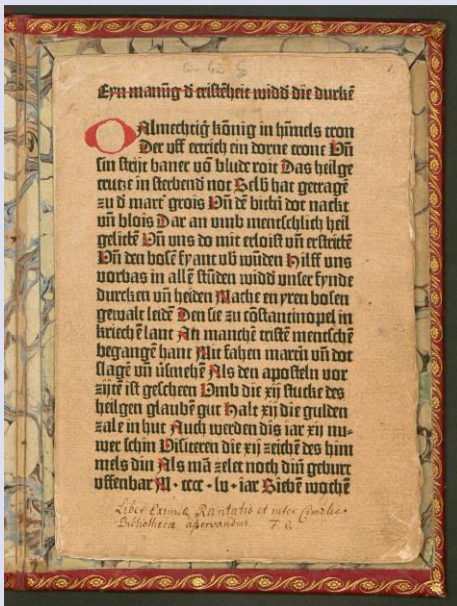 Eyn manũg d̕ cristēheit widd̕ die durkē
O Almechtig̕ kōnig in hīmels tron
Der uff ertrich ein dorne crone Uñ
sin strijt baner vō blude roit Das heilge
crutze in sterbend̕ not Selb̕ hat getragē
zu d̕ mart̕ grois Uñ dē bittñ dot nackt
vñ blois Dar an vmb mentschlich heil
gelittē Uñ vns do mit erloist vñ erstrittē
Uñ den bosē fyant vb̕ wũden Hilff vns
vorbas in allē stũden widd̕ vnser fynde
durcken vñ heiden Mache en yren bosen
gewalt leidē Den sie zu cōstantinopel in
kriechē lant An manchē cristē mentschē
begangē hant Mit fahen martñ vñ dot
slagē vñ v̕smehē Als den aposteln vor
zijtē ist gescheen Umb die xij stucke des
heilgen glaubē gut Halt xij die gulden
zale in hut Auch werden dis iar xij nu-
wer schin Visiteren die xij zeichē des him
mels din Als mā zelet noch diñ geburt
offenbar M·cccc·lv·iar Siebē wochē
Liber Eximiæ Raritatis et inter Cimelia
Bibliothecæ asservandus. F. G.